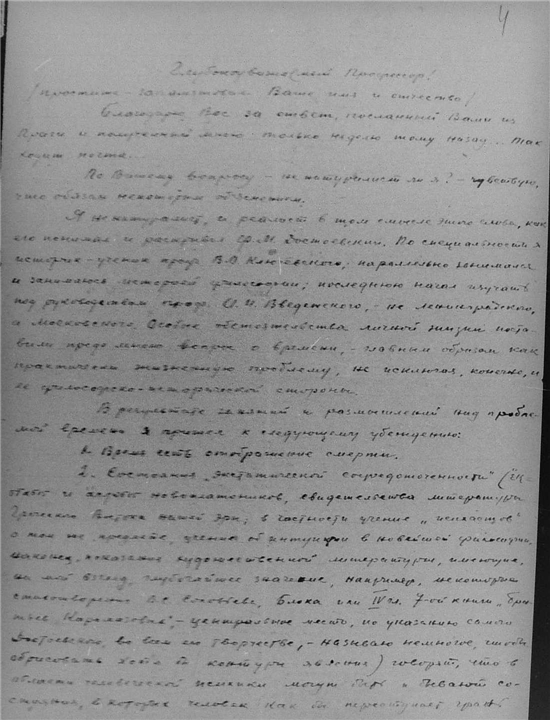 4
Глубокоуважаемый Профессор!
(простите – запамятовал Ваше имя и отчество)
Благодарю Вас за ответ, посланный Вами из
Праги и полученный мною только неделю тому назад... Так
ходит почта...
По Вашему вопросу – не натуралист ли я? – чувствую,
что обязан некоторым объяснением.
Я не натуралист, а реалист в том смысле этого слова, как
его понимал и раскрывал Ф.М. Достоевский. По специальности я
историк – ученик проф. В.О. Ключевского; параллельно занимался
и занимаюсь историей философии; последнюю начал изучать
под руководством проф. А.И. Введенского, – не ленинградского,
а московского. Особые обстоятельства личной жизни поста-
вили предо мною вопрос о времени, – главным образом как
практически жизненную проблему, не исключая, конечно, и
ее философско-исторической стороны.
В результате занятий и размышлений над пробле-
мой времени я пришел к следующему убеждению:
1. Время есть отображение смерти.
2. Состояния "экстатической сосредоточенности" (
и неоплатоников, свидетельства литературы
Греческого Востока нашей эры; в частности учение "исихастов"
о том же предмете, учения об интуиции в новейшей философии,
наконец, показания художественной литературы, имеющие,
на мой взгляд, глубочайшее значение, например, некоторые
стихотворения Вл. Соловьева, Блока или IV гл. 7-ой книги "Бра-
тьев Карамазовых" – центральное место, по указанию самого
Достоевского, во всем его творчестве, – называю немногое, чтобы
обрисовать хотя бы контуры явления) говорят, что в
области человеческой психики могут быть и бывают со-
стояния, в которых человек как бы переступает грань